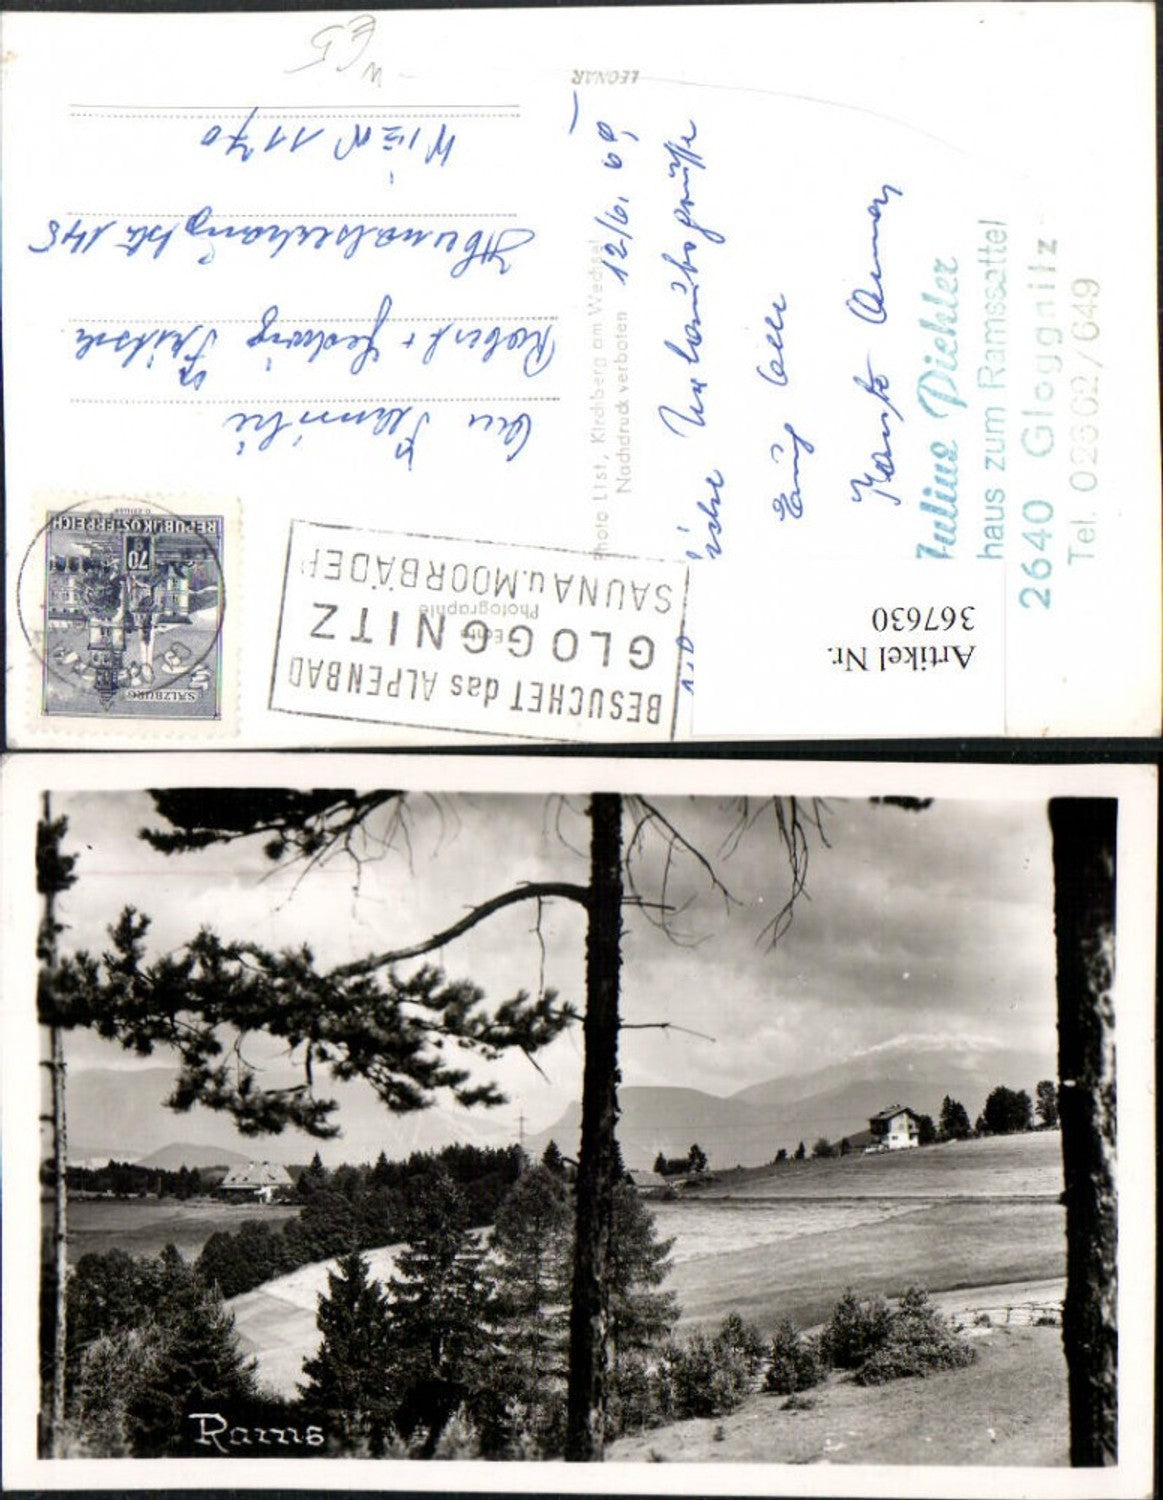 12/6. 69
Liebe Urlaubsgrüße
Eure
Julius Pichler
haus zum Ramssattel
2640 Gloggnitz
Tel. 02662/649
Artikel Nr.
367630
Photo List, Kirchberg am Wechsel
Nachdruck verboten
LEONAR
Echte
Photographie
BESUCHET das ALPENBAD
GLOGGNITZ
SAUNA u. MOORBÄDER
SALZBURG
70
REPUBLIK ÖSTERREICH
An Familie
Robert + Hedwig
WIEN 1170
Rams